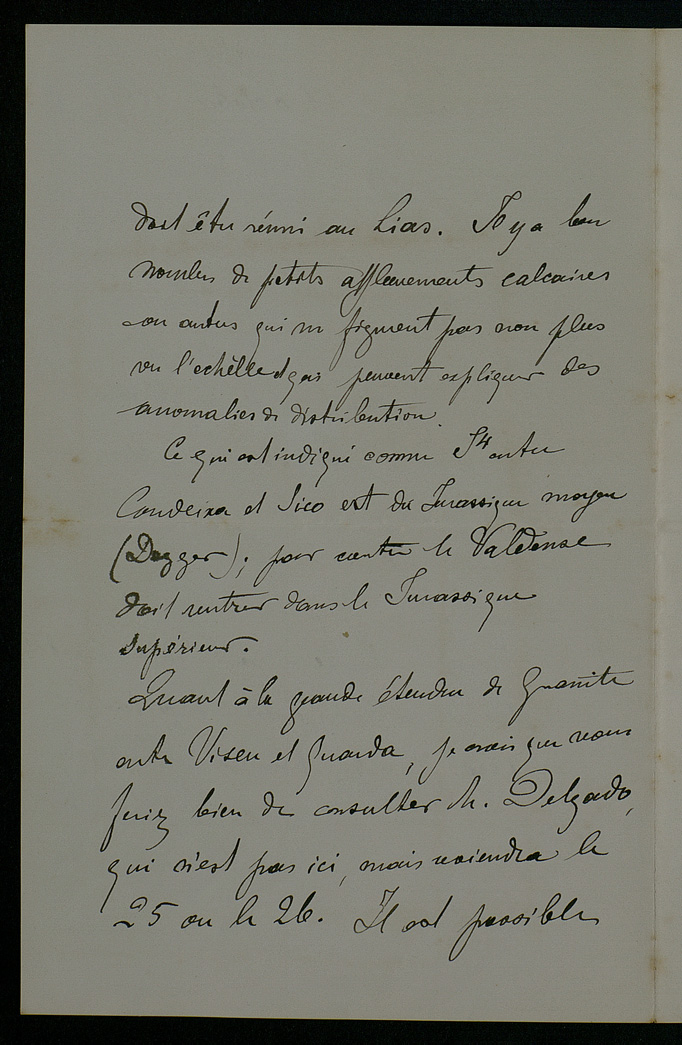 doit être réuni au Lias. Il y a bon
nombre de petits affleurements calcaires
ou autres qui ne figurent pas non plus
vu l'echêlle et qui peuvent expliquer des
anomalies de distribution.
Ce qui est indiqué comme J4 entre
Condeixa et Sico est du Jurassique moyen
(Dogger); par contre le Valdense
doit rentrer dans le Jurassique
supérieur.
Quant à la grande étendue de Granite
entre Viseu et Guarda, je crois que vous
feriez bien de consulter M. Delgado,
qui n'est pas ici, mais reviendra le
25 ou le 26. Il est possible